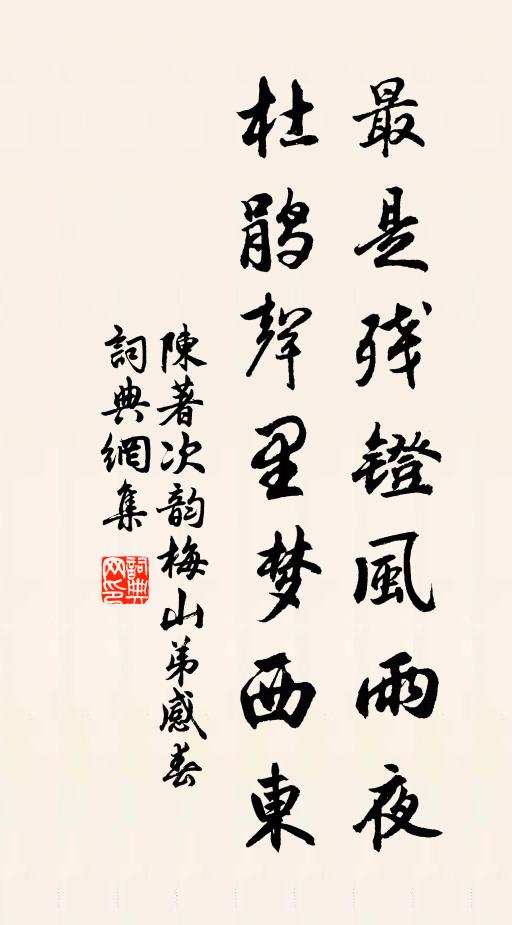 最是残镫風雨夜
杜鹃聲里梦西東
陳著次韵梅山弟感春
詞典網集
詞典网印